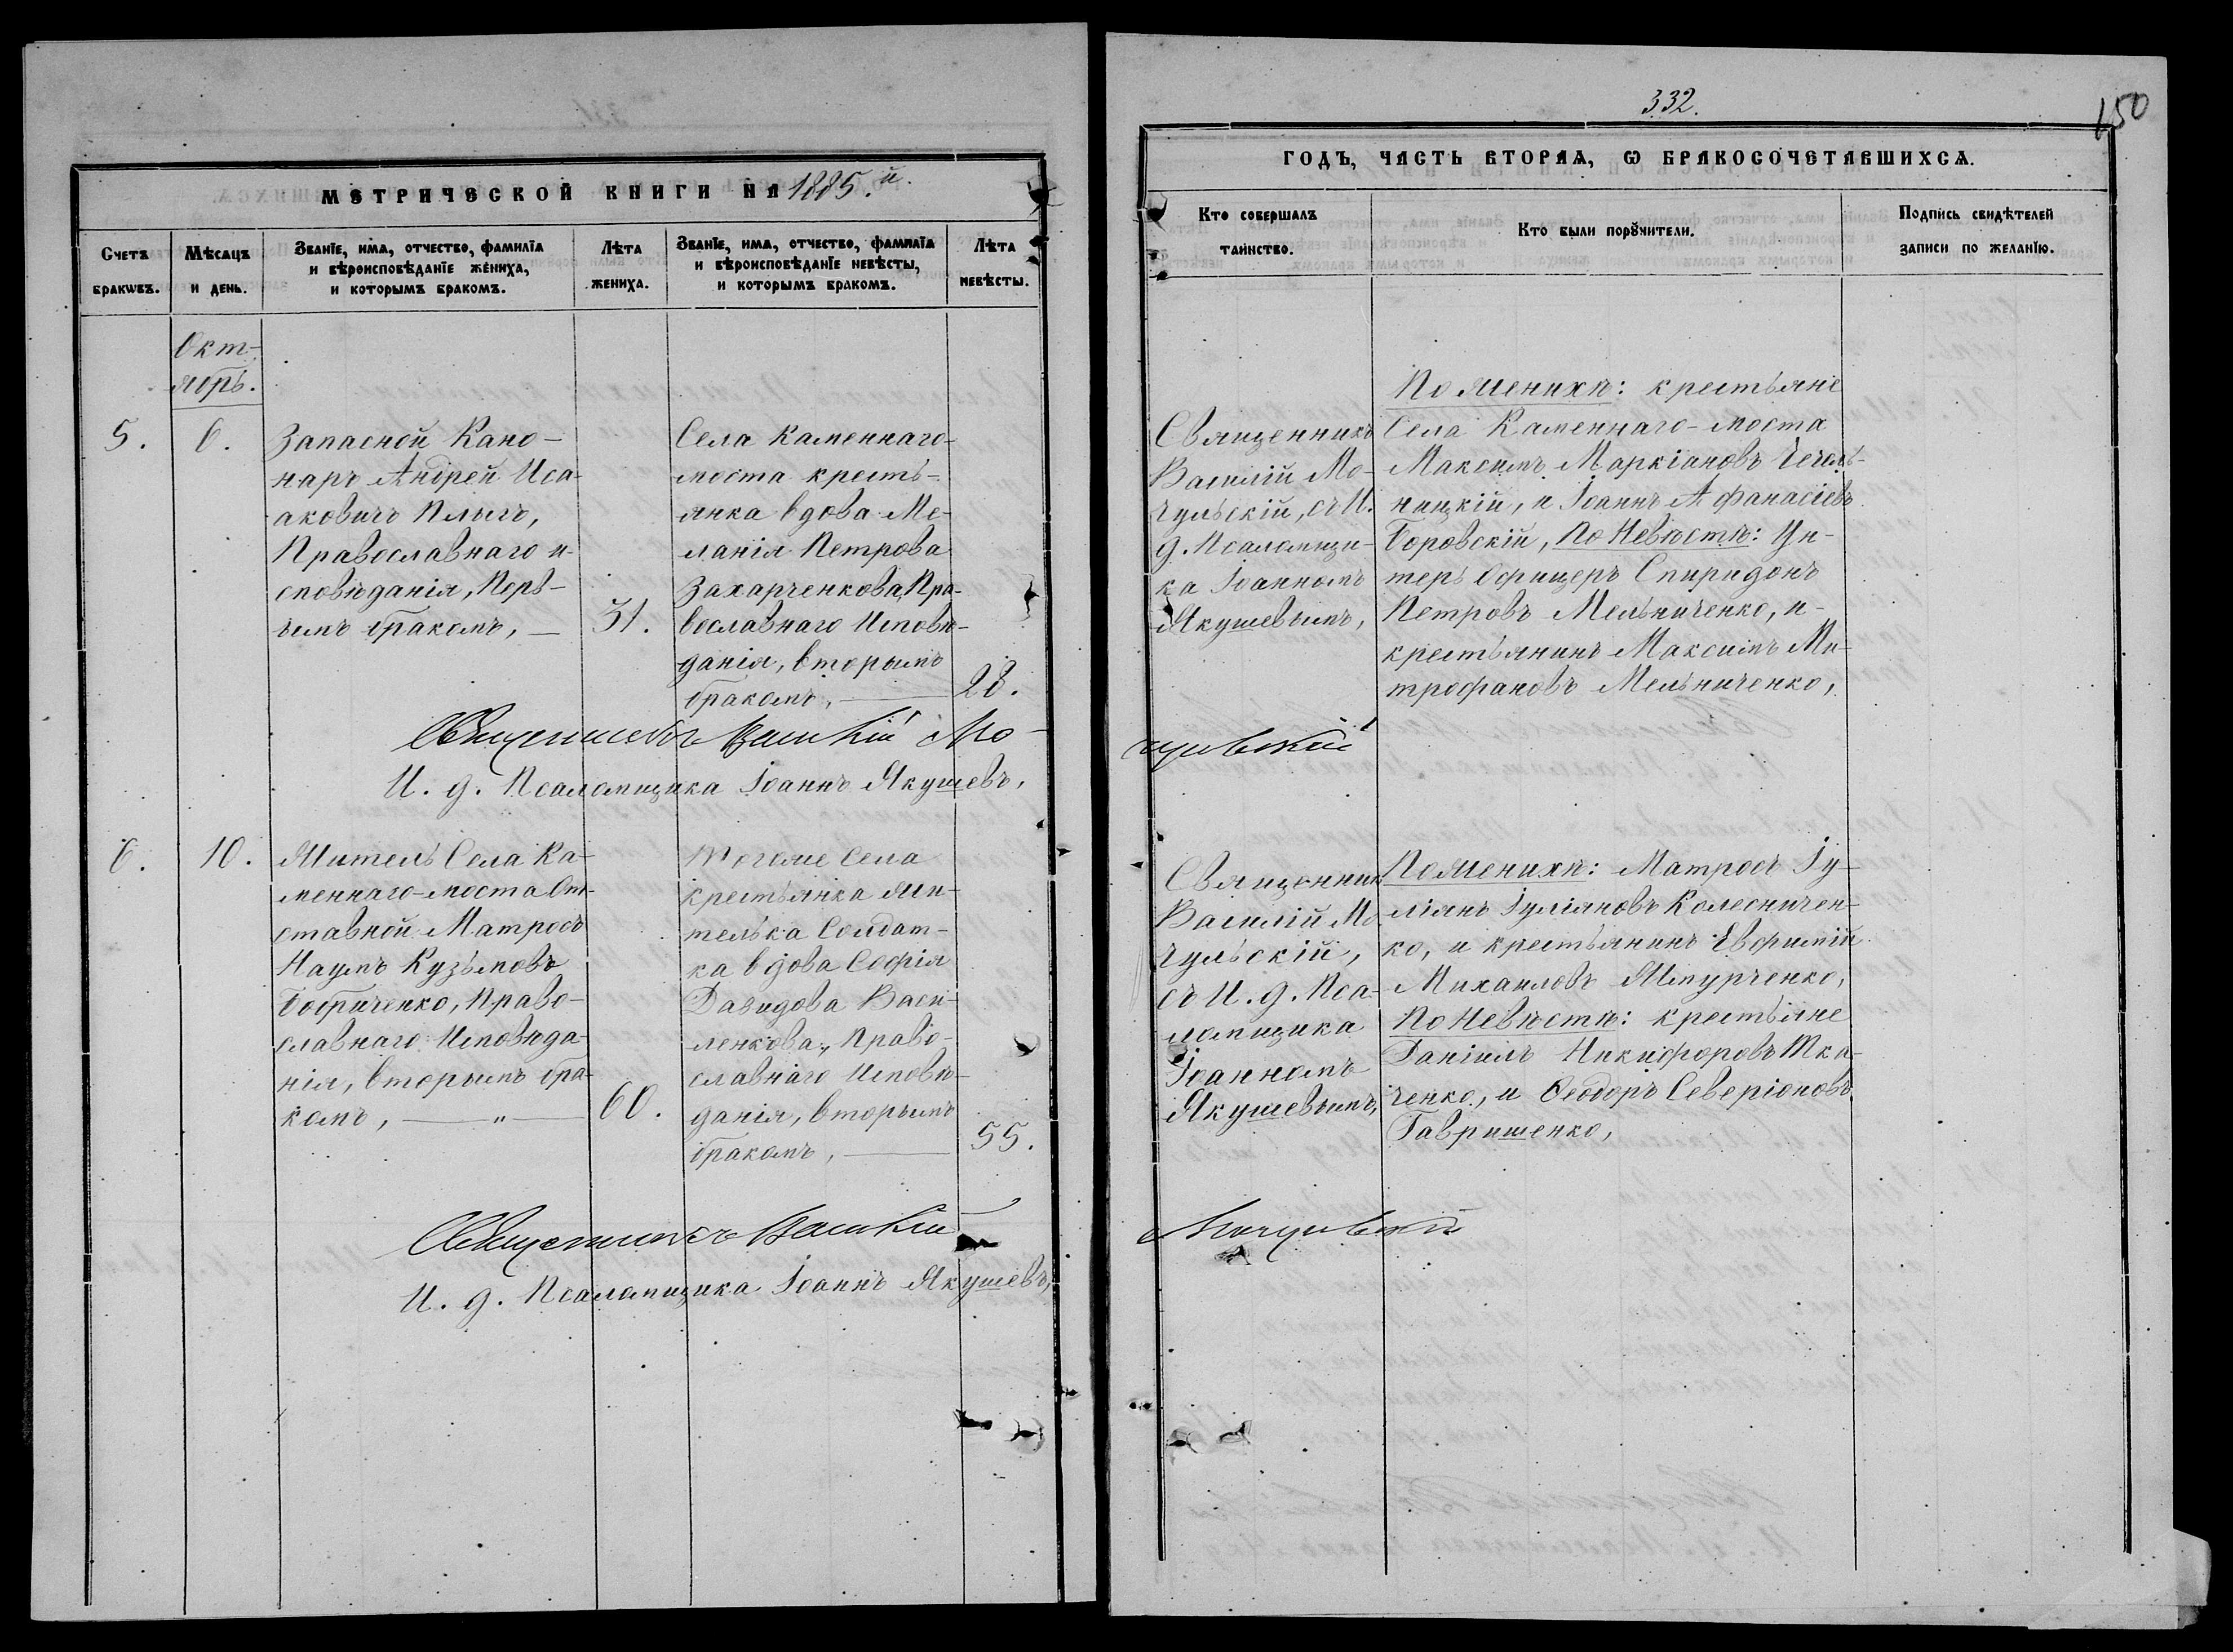 332.
150
МЕТРИЧЕСКОЙ КНИГИ НА 1885.й
ГОДЪ, ЧАСТЬ ВТОРАЯ, Ѡ БРАКОСОЧЕТАВШИХСѦ.
Счетъ
браковъ.
Мѣсяцъ
и день.
Званїе, имѧ, отчество, фамилїѧ
и вѣроисповѣданїе жениха,
и которымъ бракомъ.
Лѣта
жениха.
Званїе, имѧ, отчество, фамилїѧ
и вѣроисповѣданїе невѣсты,
и которымъ бракомъ.
Лѣта
невѣсты.
Кто совершалъ
таинство.
Кто были порꙋчители.
Подпись свидѣтелей
записи по желанїю.
Окт-
ябрь.
5.
6.
Запасной Кано-
наръ Андрей Иса-
аковичъ Плыгъ,
Православнаго и-
сповѣданія, Перв-
ымъ бракомъ, —
31.
Села Каменнаго-
моста кресть-
янка вдова Ме-
ланія Петрова
Захарченкова, Пра-
вославнаго Исповѣ-
данія, вторымъ
бракомъ, —
28.
Священникъ
Василій Мо-
чульскій, съ И.
д. Псаломщи-
ка Іоанномъ
Якушевымъ,
По Женихѣ: крестьяне
Села Каменнаго-моста
Максимъ Маркіановъ Чечель-
ницкій, и Іоаннъ Афанасіевъ
Боровскій, По Невѣстѣ: Ун-
теръ Офицеръ Спиридонъ
Петровъ Мельниченко, и-
крестьянинъ Максимъ Ми-
трофановъ Мельниченко,
Священникъ Василій Мо-
чульскій
И. д. Псаломщика Іоаннъ Якушевъ,
6.
10.
Житель Села Ка-
меннаго-моста От-
ставной Матросъ
Наумъ Кузьмовъ
Бобриченко, Право-
славнаго Исповѣда-
нія, вторымъ бра-
комъ, — „ —
60.
Тогоже Села
крестьянка жи-
телька Солдат-
ка вдова Софія
Давидова Васи-
ленкова, Право-
славнаго Исповѣ-
данія, вторымъ
бракомъ, —
55.
Священникъ
Василій Мо-
чульскій,
съ И. д. Пса-
ломщика
Іоанномъ
Якушевымъ,
По Женихѣ: Матросъ Іу-
ліянъ Іуліяновъ Колесничен-
ко, и крестьянинъ Евфимій
Михаиловъ
По Невѣстѣ: крестьяне
Даніилъ Никифоровъ Тка-
ченко, и Ѳеодоръ Северіоновъ
Гавришенко,
Священникъ Василій
Мочульскій
И. д. Псаломщика Іоаннъ Якушевъ,